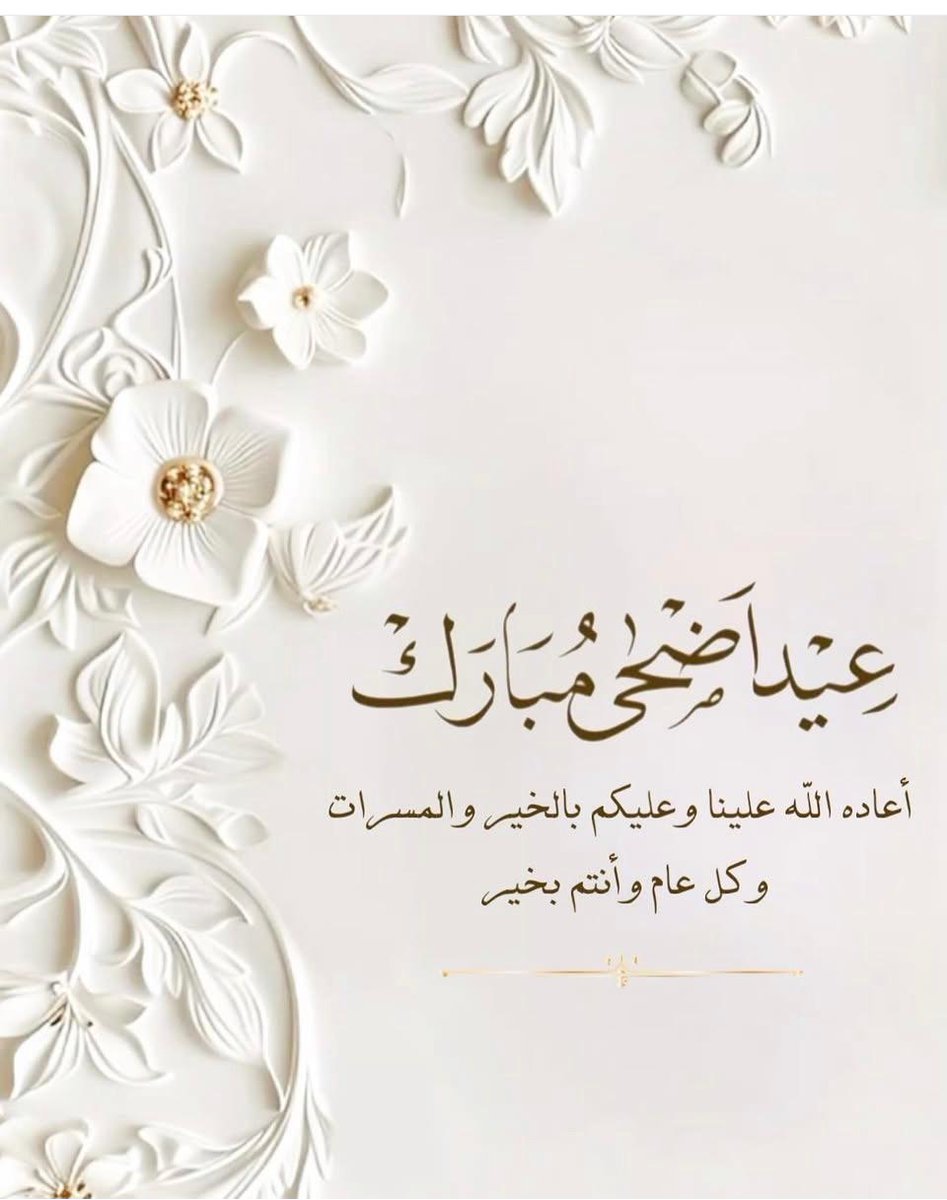 عيد اضحى مبارك
أعاده الله علينا وعليكم بالخير والمسرات
وكل عام وأنتم بخير